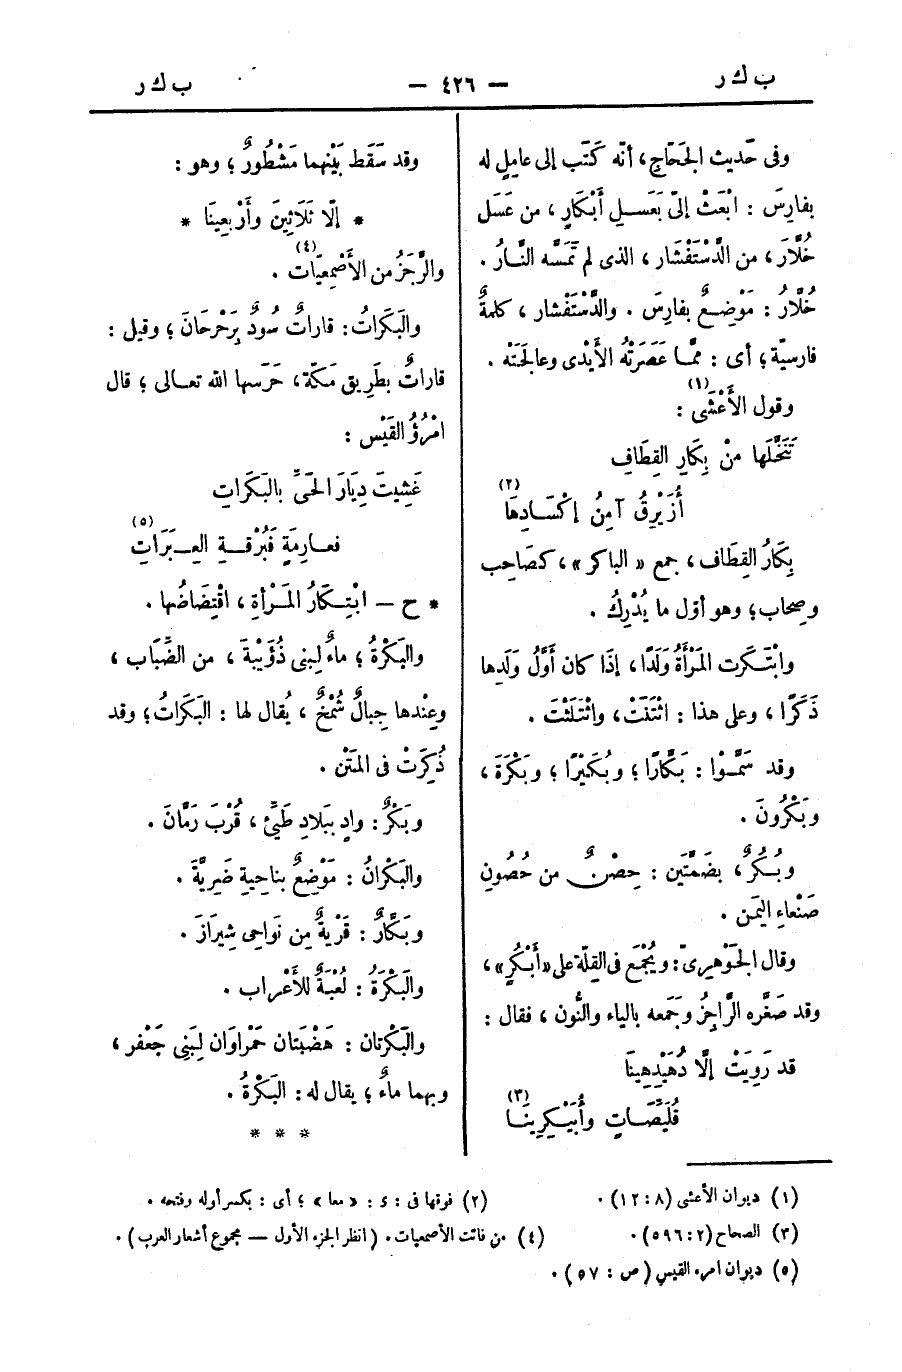 ب ك ر
— ٤٢٦ —
ب ك ر
وفى حَديث الحَجّاج، أنّه كَتَب إلى عامِلٍ له
بفارِسَ : ابْعَثْ إلىّ بعَسلِ أبْكَارٍ، من عَسَل
خُلَّارَ، من الدَّسْتَفْشار، الذى لم تَمَسَّه النَّارُ .
خُلَّارُ : مَوْضِعٌ بفارِسَ . والدَّسْتَفْشار، كلمةٌ
فارسيّة؛ أى : ممَّا عَصَرَتْهُ الأيْدى وعالجَتْه .
وقول الأَعْشَى (١) :
تَنَخَّلَها مِنْ بِكَارِ القِطَافِ
أُزَيْرِقُ آمِنُ إِكْسَادِهَا (٢)
بِكَارُ القِطَاف، جمع « الباكر »، كصَاحِب
وصِحاب؛ وهو أوّل ما يُدْرِكُ .
وابْتَكَرت المَرْأَةُ وَلَدًا، إذَا كان أوَّلُ وَلَدِها
ذَكَرًا، وعلى هذا : اثْتَنَتْ، واثْتَلَثَتْ .
وقد سَمَّوْا : بَكَّارًا؛ وبُكَيْرًا؛ وبَكْرَةَ،
وبَكْرُونَ .
وبُكُرٌ، بضَمَّتَين : حِصْنٌ من حُصُونِ
صَنْعاءِ اليَمن .
وقال الجَوْهرىّ : ويُجْمَع فى القِلّة على «أَبْكُرٍ»،
وقد صَغَّره الرَّاجِزُ وجَمَعه بالياء والنُّون، فقال :
قد رَوِيَتْ إلَّا دُهَيْدِهِينَا
قُلَيِّصَاتٍ وأُبَيْكِرِينَا (٣)
وقد سَقَط بَيْنهما مَشْطُورٌ؛ وهو :
* إلّا ثَلاثِينَ وأرْبعِينَا *
والرَّجَزُ من الأَصْمعِيّات (٤) .
والبَكَراتُ : قاراتٌ سُودٌ بِرَحْرَحانَ؛ وقيل :
قاراتٌ بطَرِيق مَكّة، حَرَسها الله تعالى؛ قال
امْرُؤُ القَيْس :
غَشِيتَ دِيَارَ الحَىِّ بالبَكَراتِ
فعارِمَةٍ فَبُرْقةِ العِيَرَاتِ (٥)
* ح — ابْتِكَارُ المَرْأةِ، اقْتِضَاضُها .
والبَكْرَةُ؛ ماءٌ لِبنى ذُؤَيْبةَ، من الضِّبَاب،
وعِنْدها جِبالٌ شُمْخٌ، يُقال لها : البَكَراتُ؛ وقد
ذُكِرَتْ فى المَتْن .
وبَكْرٌ : وادٍ ببلادِ طَيِّئ، قُرْبَ رَمَّانَ .
والبَكْرانُ : مَوْضِعٌ بناحِيةِ ضَرِيَّةَ .
وبَكَّارٌ : قَرْيةٌ مِن نَواحِى شِيرَازَ .
والبَكْرَةُ : لُعْبَةٌ للأَعْراب .
والبَكْرَتان : هَضْبَتان حَمْراوَان لِبَنِى جَعْفر،
وبهما ماءٌ؛ يقال له : البَكْرةُ .
* * *
(١) ديوان الأعشى (٨ : ١٢) .
(٢) فوقها فى : ى : « معا »؛ أى : بكسر أوله وفتحه .
(٣) الصحاح (٢ : ٥٩٦) .
(٤) من فائت الأصمعيات . (انظر الجزء الأول — مجموع أشعار العرب) .
(٥) ديوان امرء القيس (ص : ٥٧) .